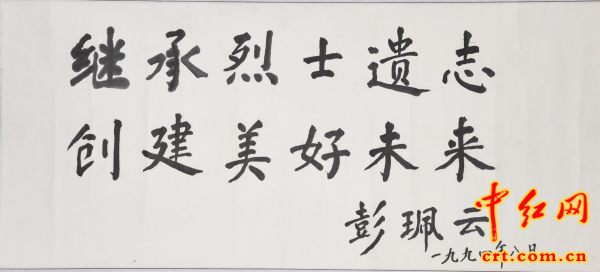 继承烈士遗志
创建美好未来
彭珮云
一九九四年八月
中红网
crt.com.cn